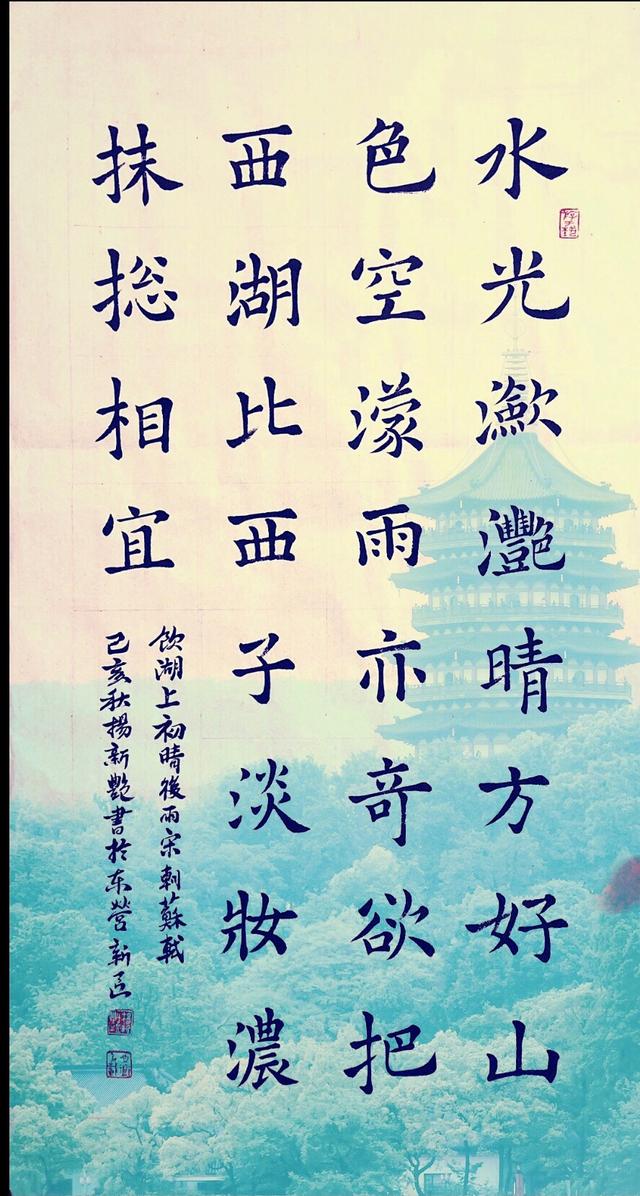 水光瀲灧晴方好山
色空濛雨亦奇欲把
西湖比西子淡妝濃
抹捴相宜
飲湖上初晴後雨宋朝蘇軾
己亥秋楊新艷書於东營新區